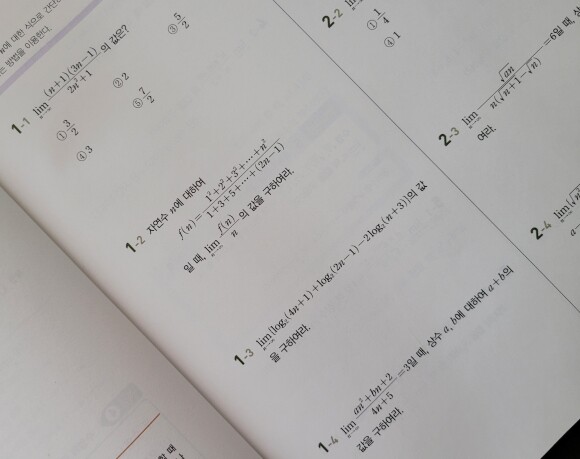 n에 대한 식으로 간단히
는 방법을 이용한다.
1-1 lim (n+1)(3n-1) / 2n²+1 의 값은?
① 3/2 ② 2 ③ 5/2
④ 3 ⑤ 7/2
1-2 자연수 n에 대하여
f(n)= 1²+2²+3²+⋯+n² / 1+3+5+⋯+(2n-1)
일 때, lim f(n)/n 의 값을 구하여라.
1-3 lim{log₂(4n+1)+log₂(2n-1)-2log₂(n+3)}의 값
을 구하여라.
1-4 lim an²+bn+2 / 4n+5 =3일 때, 상수 a, b에 대하여 a+b의
값을 구하여라.
2-2
① 1/4
④ 1
2-3 lim √an / n(√n+1-√n) =6일 때, 상
여라.
2-4 lim
a-
할 때